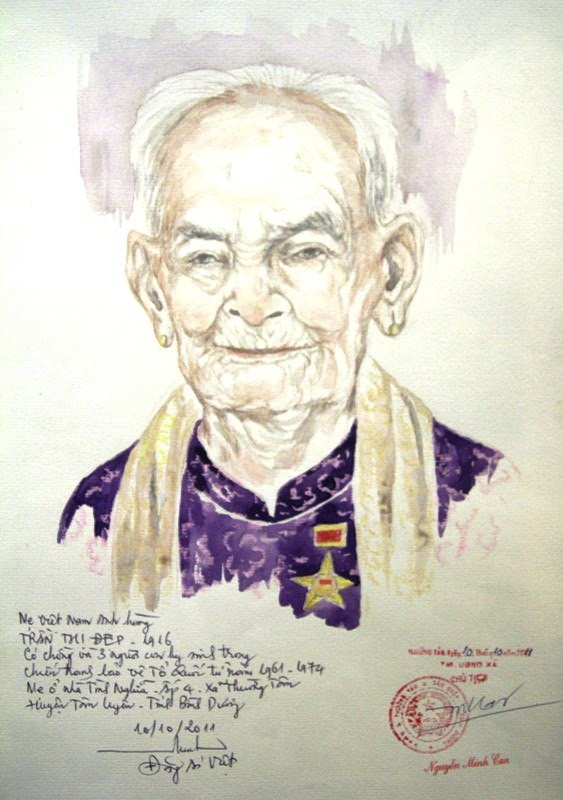 Mẹ Việt Nam Anh hùng
TRẦN THỊ ĐẸP - 1916
Có chồng và 3 người con hy sinh trong
chiến tranh bảo vệ Tổ Quốc từ năm 1961 - 1974
Mẹ ở nhà Tình Nghĩa - ấp 4 - Xã Thường Tân
Huyện Tân Uyên - Tỉnh Bình Dương
10/10/2011
Đặng Ái Việt
THƯỜNG TÂN, Ngày 10 tháng 10 năm 2011
TM. UBND XÃ
CHỦ TỊCH
Nguyễn Minh Can